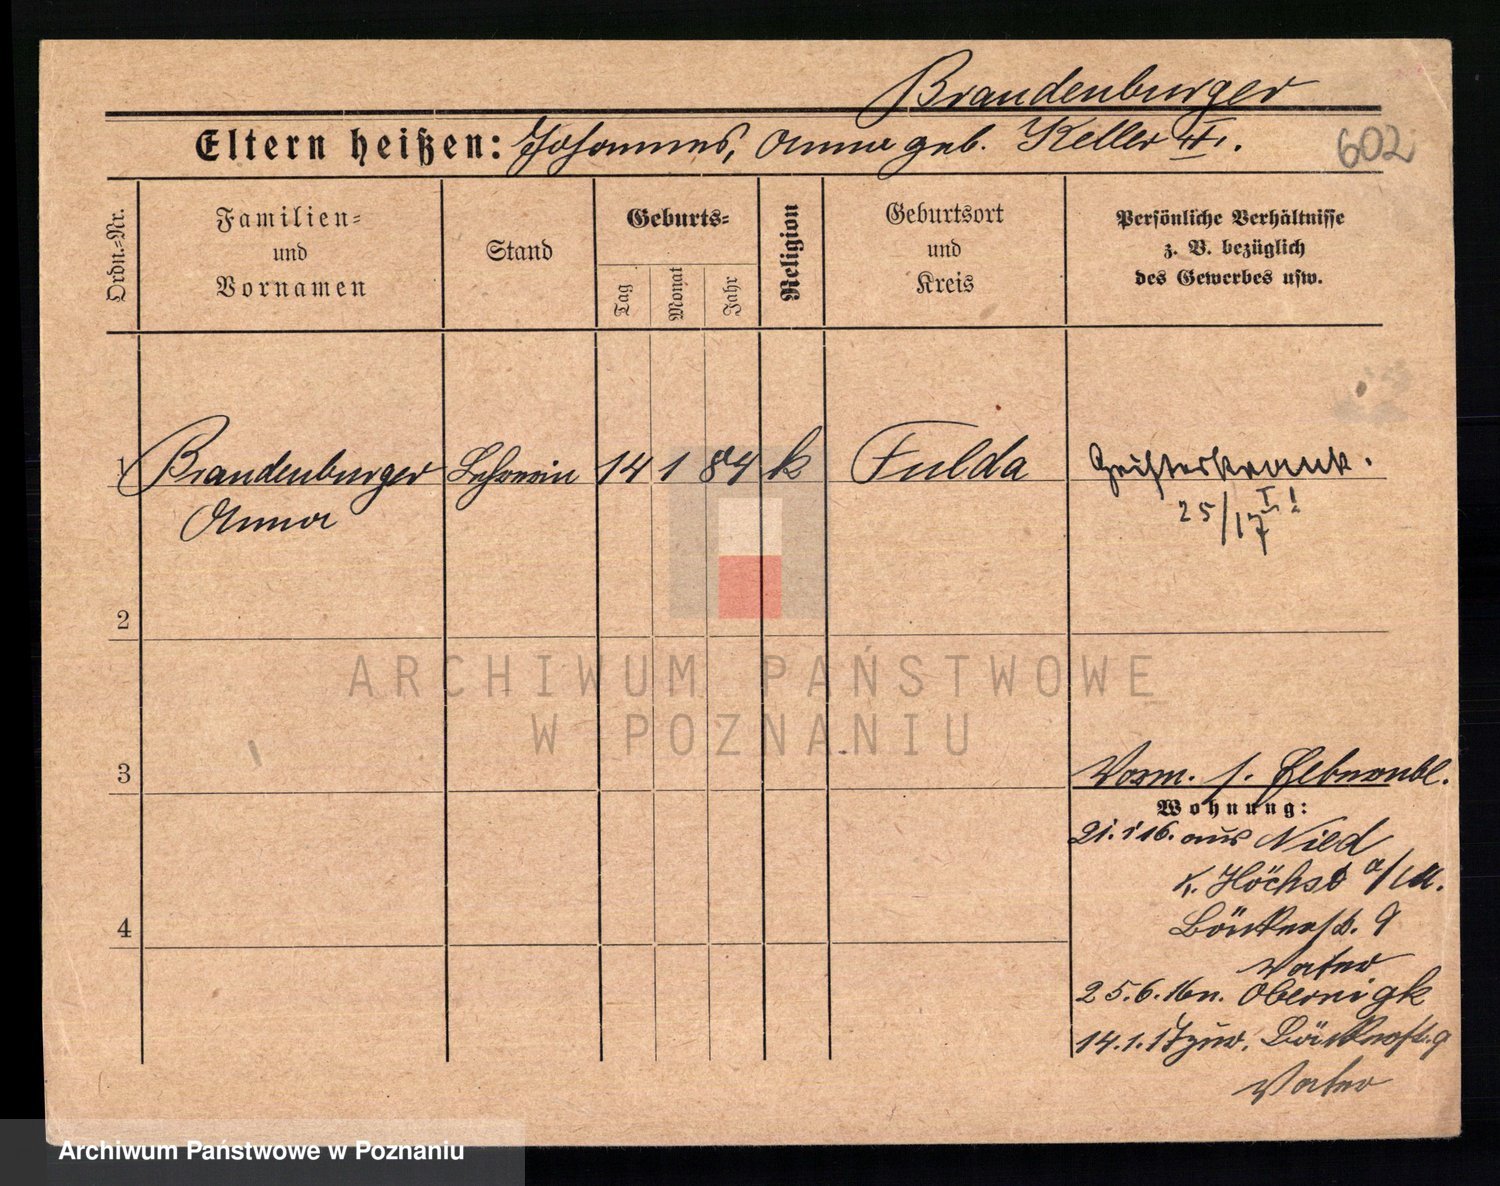 Brandenburger
Eltern heißen: Johannes, Anna geb. Keller
602
Ordn.-Nr.
Familien- und Vornamen
Stand
Geburts-
Tag
Monat
Jahr
Religion
Geburtsort und Kreis
Persönliche Verhältnisse
z. B. bezüglich
des Gewerbes usw.
1 Brandenburger 14 1 84 k Fulda Geisteskrank.
Anna
25/I 17!
2
3
Vorm. s.
Wohnung:
21.1.16. aus Nied
K. Höchst a/M.
4
9
Vater
25.6.16 n. Obernigk
14.1.17 zur. 9
Vater
ARCHIWUM PAŃSTWOWE
W POZNANIU
Archiwum Państwowe w Poznaniu